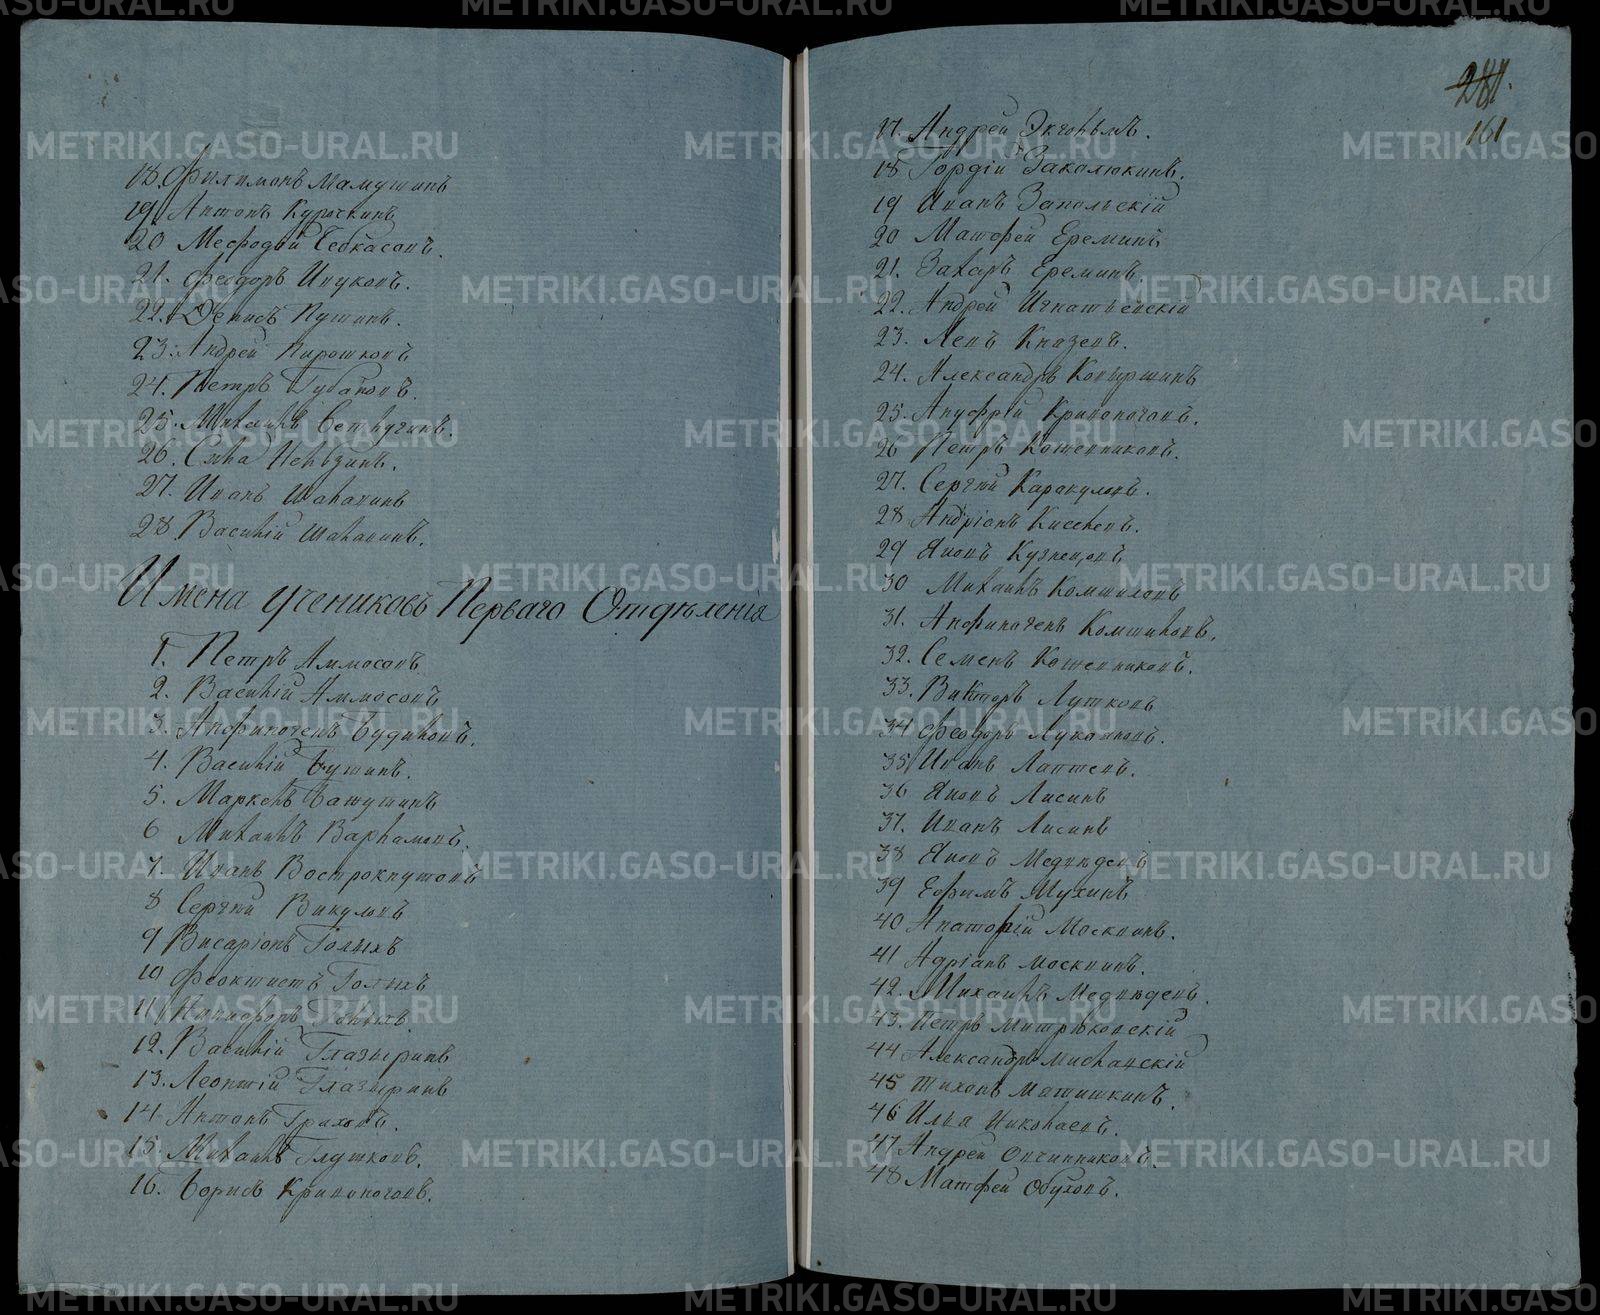 18. Филимонъ Мамушинъ
19. Антонъ Курочкинъ
20 Мефодій Чебкасовъ.
21. Феодоръ Внуковъ.
22. Денисъ Пушинъ.
23. Андрей Пирошковъ
24. Петръ Губановъ.
25. Михаилъ
26. Сила
27. Иванъ Шалавинъ
28. Василій Шалавинъ.
Имена учениковъ Перваго Отдѣленія
1. Петръ Аммосовъ
2. Василій Аммосовъ
3. Анфиногенъ Будиловъ.
4. Василій Бутинъ.
5. Маркелъ Батутинъ
6 Михаилъ Варламовъ.
7. Иванъ Вострокнутовъ
8 Сергѣй Викуловъ
9 Висаріонъ Голыхъ
10 Феоктистъ Голыхъ
11 Никифоръ Голыхъ.
12. Василій Глазыринъ
13. Леонтій Глазыринъ
14. Антонъ Гриховъ.
15. Михаилъ Глушковъ.
16. Борисъ Кривоноговъ.
281.
161
17. Андрей
18 Гордій Заколюкинъ.
19 Иванъ Запольскій
20 Матфей Ереминъ
21. Захаръ Ереминъ
22. Андрей Игнатьевскій
23. Левъ Князевъ.
24. Александръ Копыршинъ
25. Ануфрій Кривоноговъ.
26 Петръ Кожевниковъ.
27. Сергѣй Каракуловъ.
28 Андріанъ Киселевъ.
29 Яковъ Кузнецовъ
30 Михаилъ Комшиловъ
31. Анфиногенъ Комшиловъ.
32. Семенъ Кожевниковъ.
33. Викторъ Лутковъ
34 Феодоръ Лукояновъ.
35 Иванъ Лаптевъ.
36 Яковъ Лисинъ
37. Иванъ Лисинъ
38 Яковъ Медвѣдевъ
39 Ефимъ Мухинъ
40 Анаторій Москвинъ.
41 Адріанъ Москвинъ.
42. Михаилъ Медвѣдевъ.
43. Петръ Митрѣковскій
44 Александръ Миславскій
45 Тихонъ Матишкинъ.
46 Илья Николаевъ.
47 Андрей Овчинниковъ.
48 Матфей Обуховъ.
METRIKI.GASO-URAL.RU